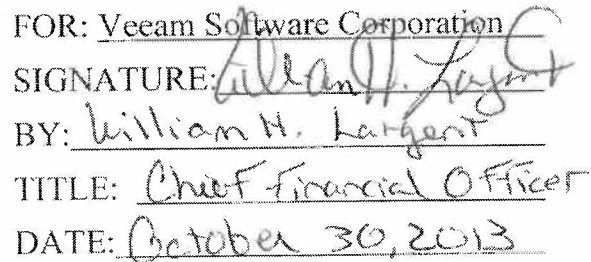 FOR: Veeam Software Corporation
SIGNATURE: William H. Largent
BY: William H. Largent
TITLE: Chief Financial Officer
DATE: October 30, 2013